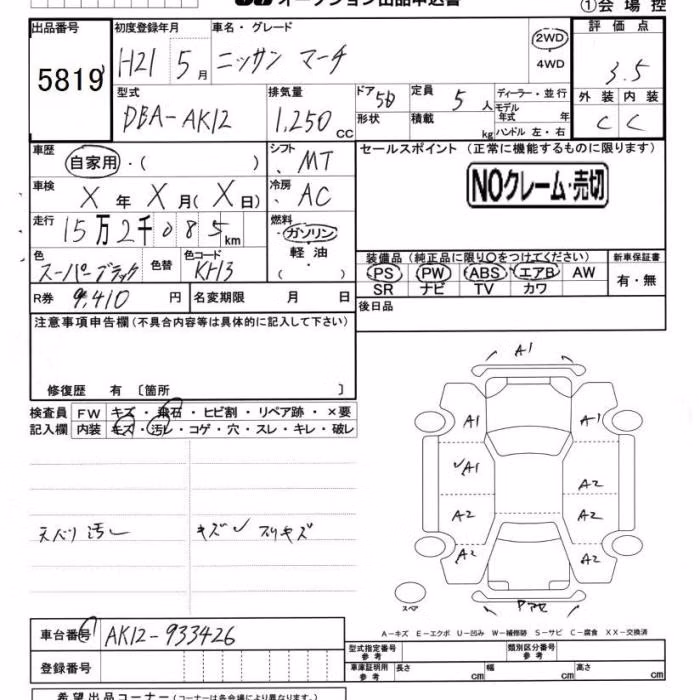 オークション出品申込書
①会場控
出品番号 5819
初度登録年月 H21 5月
車名・グレード ニッサン マーチ
2WD
4WD
評価点 3.5
型式 DBA-AK12
排気量 1,250 CC
ドア 5D
形状
定員 5人
積載 kg
ディーラー・並行
モデル年式 年
ハンドル 左・右
外装 内装
C C
車歴 自家用・( )
シフト MT
セールスポイント (正常に機能するものに限ります)
NOクレーム・売切
車検 X年 X月(X日)
冷房 AC
走行 15万2千085km
燃料 ガソリン
軽油
( )
色 スーパーブラック
色替
色コード KH3
装備品(純正品に限り○をつけてください)
新車保証書
PS PW ABS エアB AW
SR ナビ TV カワ
有・無
R券 9,410円
名変期限 月 日
後日品
注意事項申告欄(不具合内容等は具体的に記入して下さい)
修復歴 有〔箇所 〕
検査員 FW キズ・飛石・ヒビ割・リペア跡・×要
記入欄 内装 キズ・汚レ・コゲ・穴・スレ・キレ・破レ
A1
A1 A1
A1 A2
A2 A2
A2 A2
スペア
A-キズ E-エクボ U-凹み W-補修跡 S-サビ C-腐食 XX-交換済
車台番号 AK12-933426
登録番号
型式指定番号 参考
類別区分番号 参考
車庫証明用 参考 長さ cm 幅 cm 高さ cm
希望出品コーナー(コーナーは各会場により異なります。)